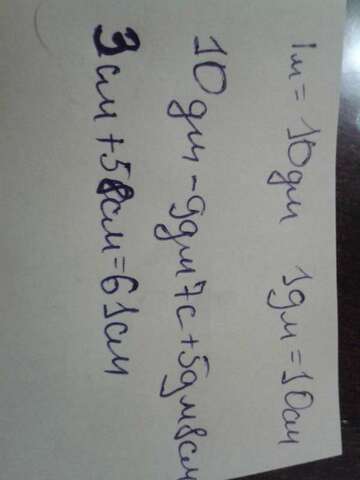 1м = 10дм 1дм = 10см
10 дм - 9дм 7с + 5дм 8см
3см + 58см = 61см